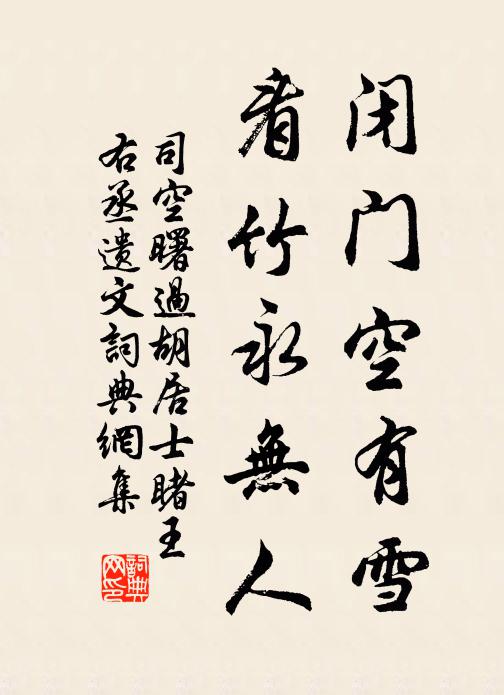 闭门空有雪
看竹永無人
司空曙過胡居士睹王
右丞遗文詞典網集
詞典网印